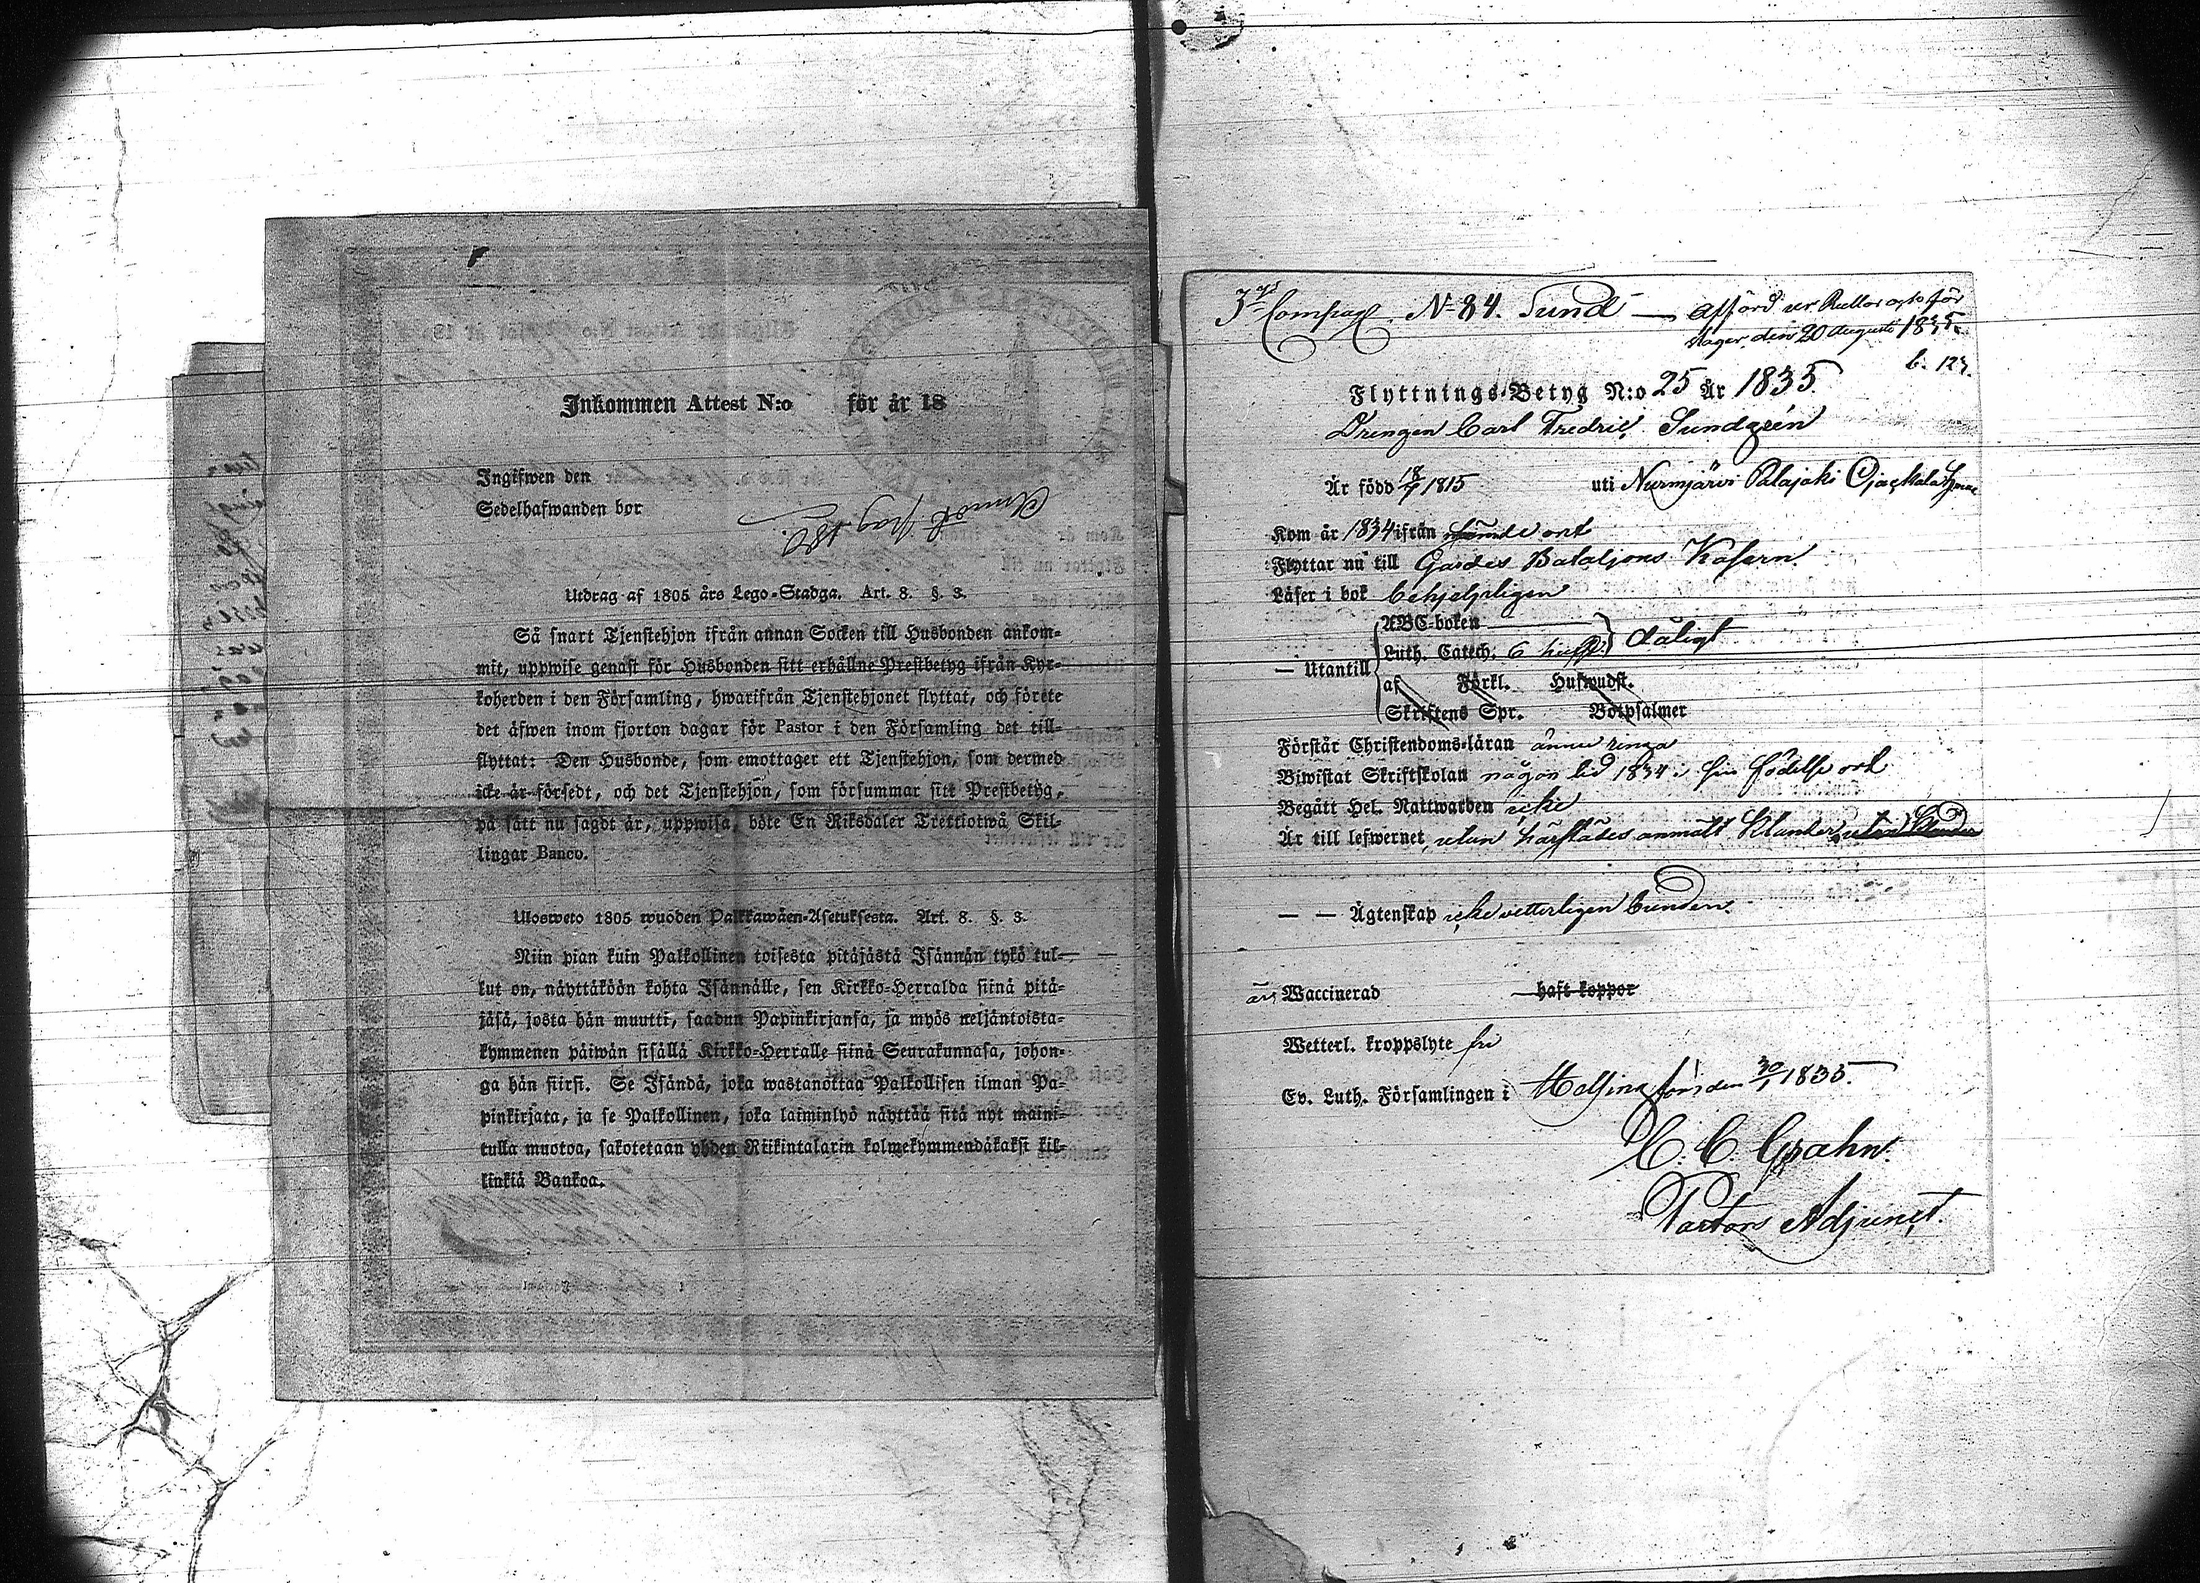 Inkommen Attest N:o för år 18
Ingifwen den
Sedelhafwanden bor
Utdrag af 1805 års Lego-Stadga. Art. 8. §. 3.
Så snart Tjenstehjon ifrån annan Socken till Husbonden ankom-
mit, uppwise genast för Husbonden sitt erhållne Prestbetyg ifrån Kyr-
koherden i den Församling, hwarifrån Tjenstehjonet flyttat, och förete
det äfwen inom fjorton dagar för Pastor i den Församling det till-
flyttat: Den Husbonde, som emottager ett Tjenstehjon, som dermed
icke är försedt, och det Tjenstehjon, som försummar sitt Prestbetyg,
på sätt nu sagdt är, uppwisa, böte En Riksdaler Trettiotwå Skil-
lingar Banco.
Ulosweto 1805 wuoden Palkkawäen-Asetuksesta. Art. 8. §. 3.
Niin pian kuin Palkollinen toisesta pitäjästä Isännän tykö tul-
lut on, näyttäköön kohta Isännälle, sen Kirkko-Herralda siinä pitä-
jäsä, josta hän muutti, saadun Papinkirjansa, ja myös neljäntoista-
kymmenen päiwän sisällä Kirkko-Herralle siinä Seurakunnasa, johon-
ga hän siirsi. Se Isändä, joka wastanottaa Palkollisen ilman Pa-
pinkirjata, ja se Palkollinen, joka laiminlyö näyttää sitä nyt maini-
tulla muotoa, sakotetaan yhden Riikintalarin kolmekymmendäkaksi kil-
linkiä Bankoa.
3dje Compag. N 84. Sund — afförd ur Rullor och för
dager den 20 Augusti 1835.
b. 123.
Flyttnings-Betyg N:o 25 År 1835
Drengen Carl Fredric Sundgrén
Är född 18/7 1815 uti Nurmjärvi Palajoki
Kom år 1834 ifrån ort
Flyttar nu till Gardes Bataljons Kasern.
Läser i bok behjelpligen
— Utantill ABC-boken
Luth. Catech. 6 huf. dåligt
af Förkl. Huswudst.
Skriftens Spr. Botpsalmer
Förstår Christendoms-läran ännu ringa
Biwistat Skriftskolan någon tid 1834 i sin födelse ort
Begått Hel. Nattwarden icke
Är till lefwernet utan härstädes anmält klander, utan klander
— — Ägtenskap icke vetterligen bunden.
är Waccinerad haft koppor
Wetterl. kroppslyte fri
Ev. Luth. Församlingen i Helsingfors den 30/1 1835.
C. C. Grahn.
Pastors Adjunct.